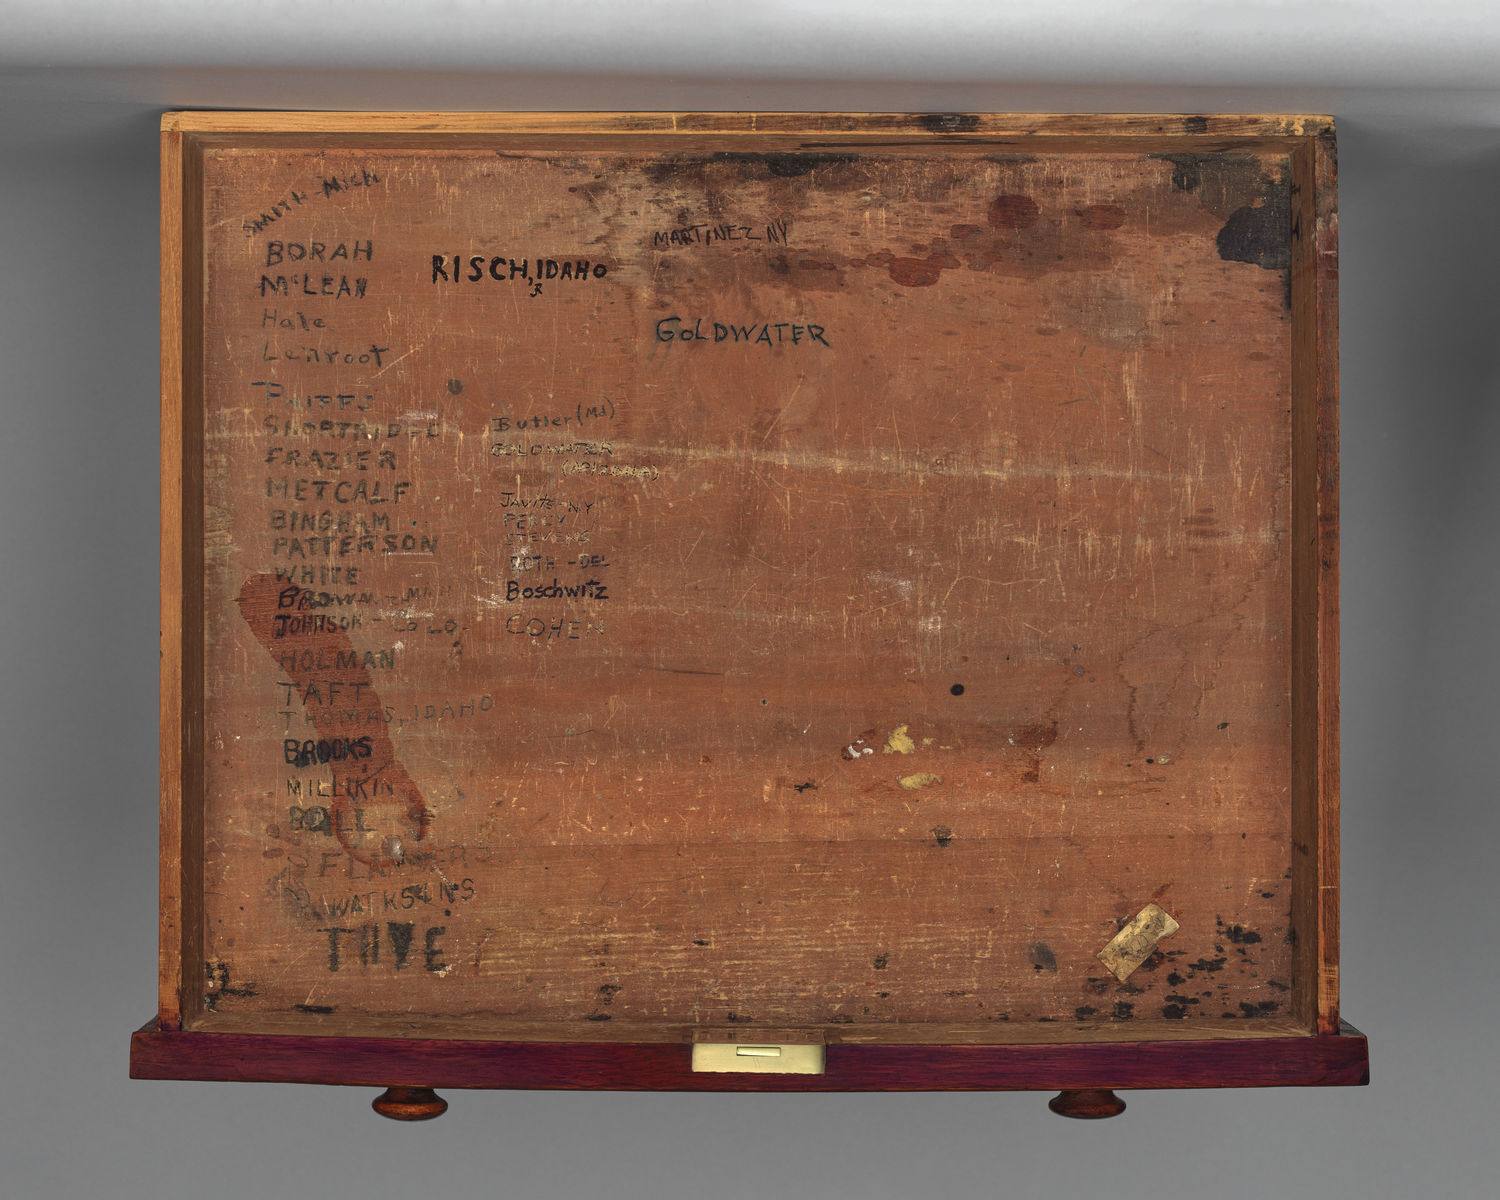 SMITH - Mich
BORAH
McLEAN
Hale
Lenroot
PHIPPS
SHORTRIDGE
FRAZIER
METCALF
BINGHAM
PATTERSON
WHITE
BROWN - NAH
JOHNSON - COLO.
HOLMAN
TAFT
THOMAS, IDAHO
BROOKS
MILLIKIN
BALL
WATKSINS
THYE
RISCH, IDAHO
R
Butler (Md)
GOLDWATER
(ARIZONA)
JAVITS - NY
PERCY
STEVENS
ROTH - DEL
Boschwitz
COHEN
MARTINEZ NY
GOLDWATER